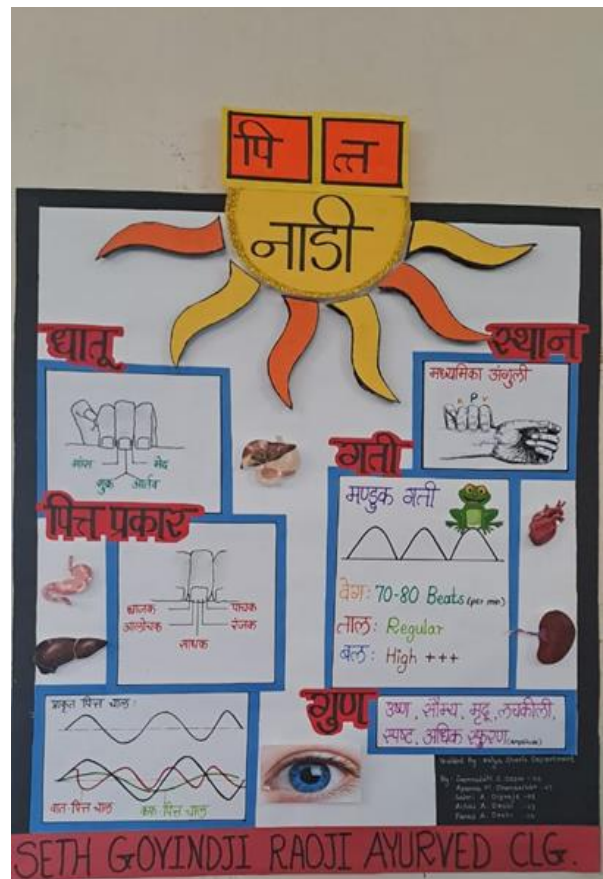 पित्त
नाडी
धातू
मांस मेद
शुक्र आर्तव
स्थान
मध्यमिका अंगुली
P V
गती
मण्डुक गती
वेग: 70-80 Beats (per min)
ताल: Regular
बल: High +++
पित्त प्रकार
भ्राजक पाचक
आलोचक रंजक
साधक
प्राकृत पित्त चाल:
वात-पित्त चाल कफ-पित्त चाल
गुण
उष्ण, सौम्य, मृदू, लचकीली,
स्पष्ट, अधिक स्फुरण (amplitude)
Department
By:
SETH GOVINDJI RAOJI AYURVED CLG.